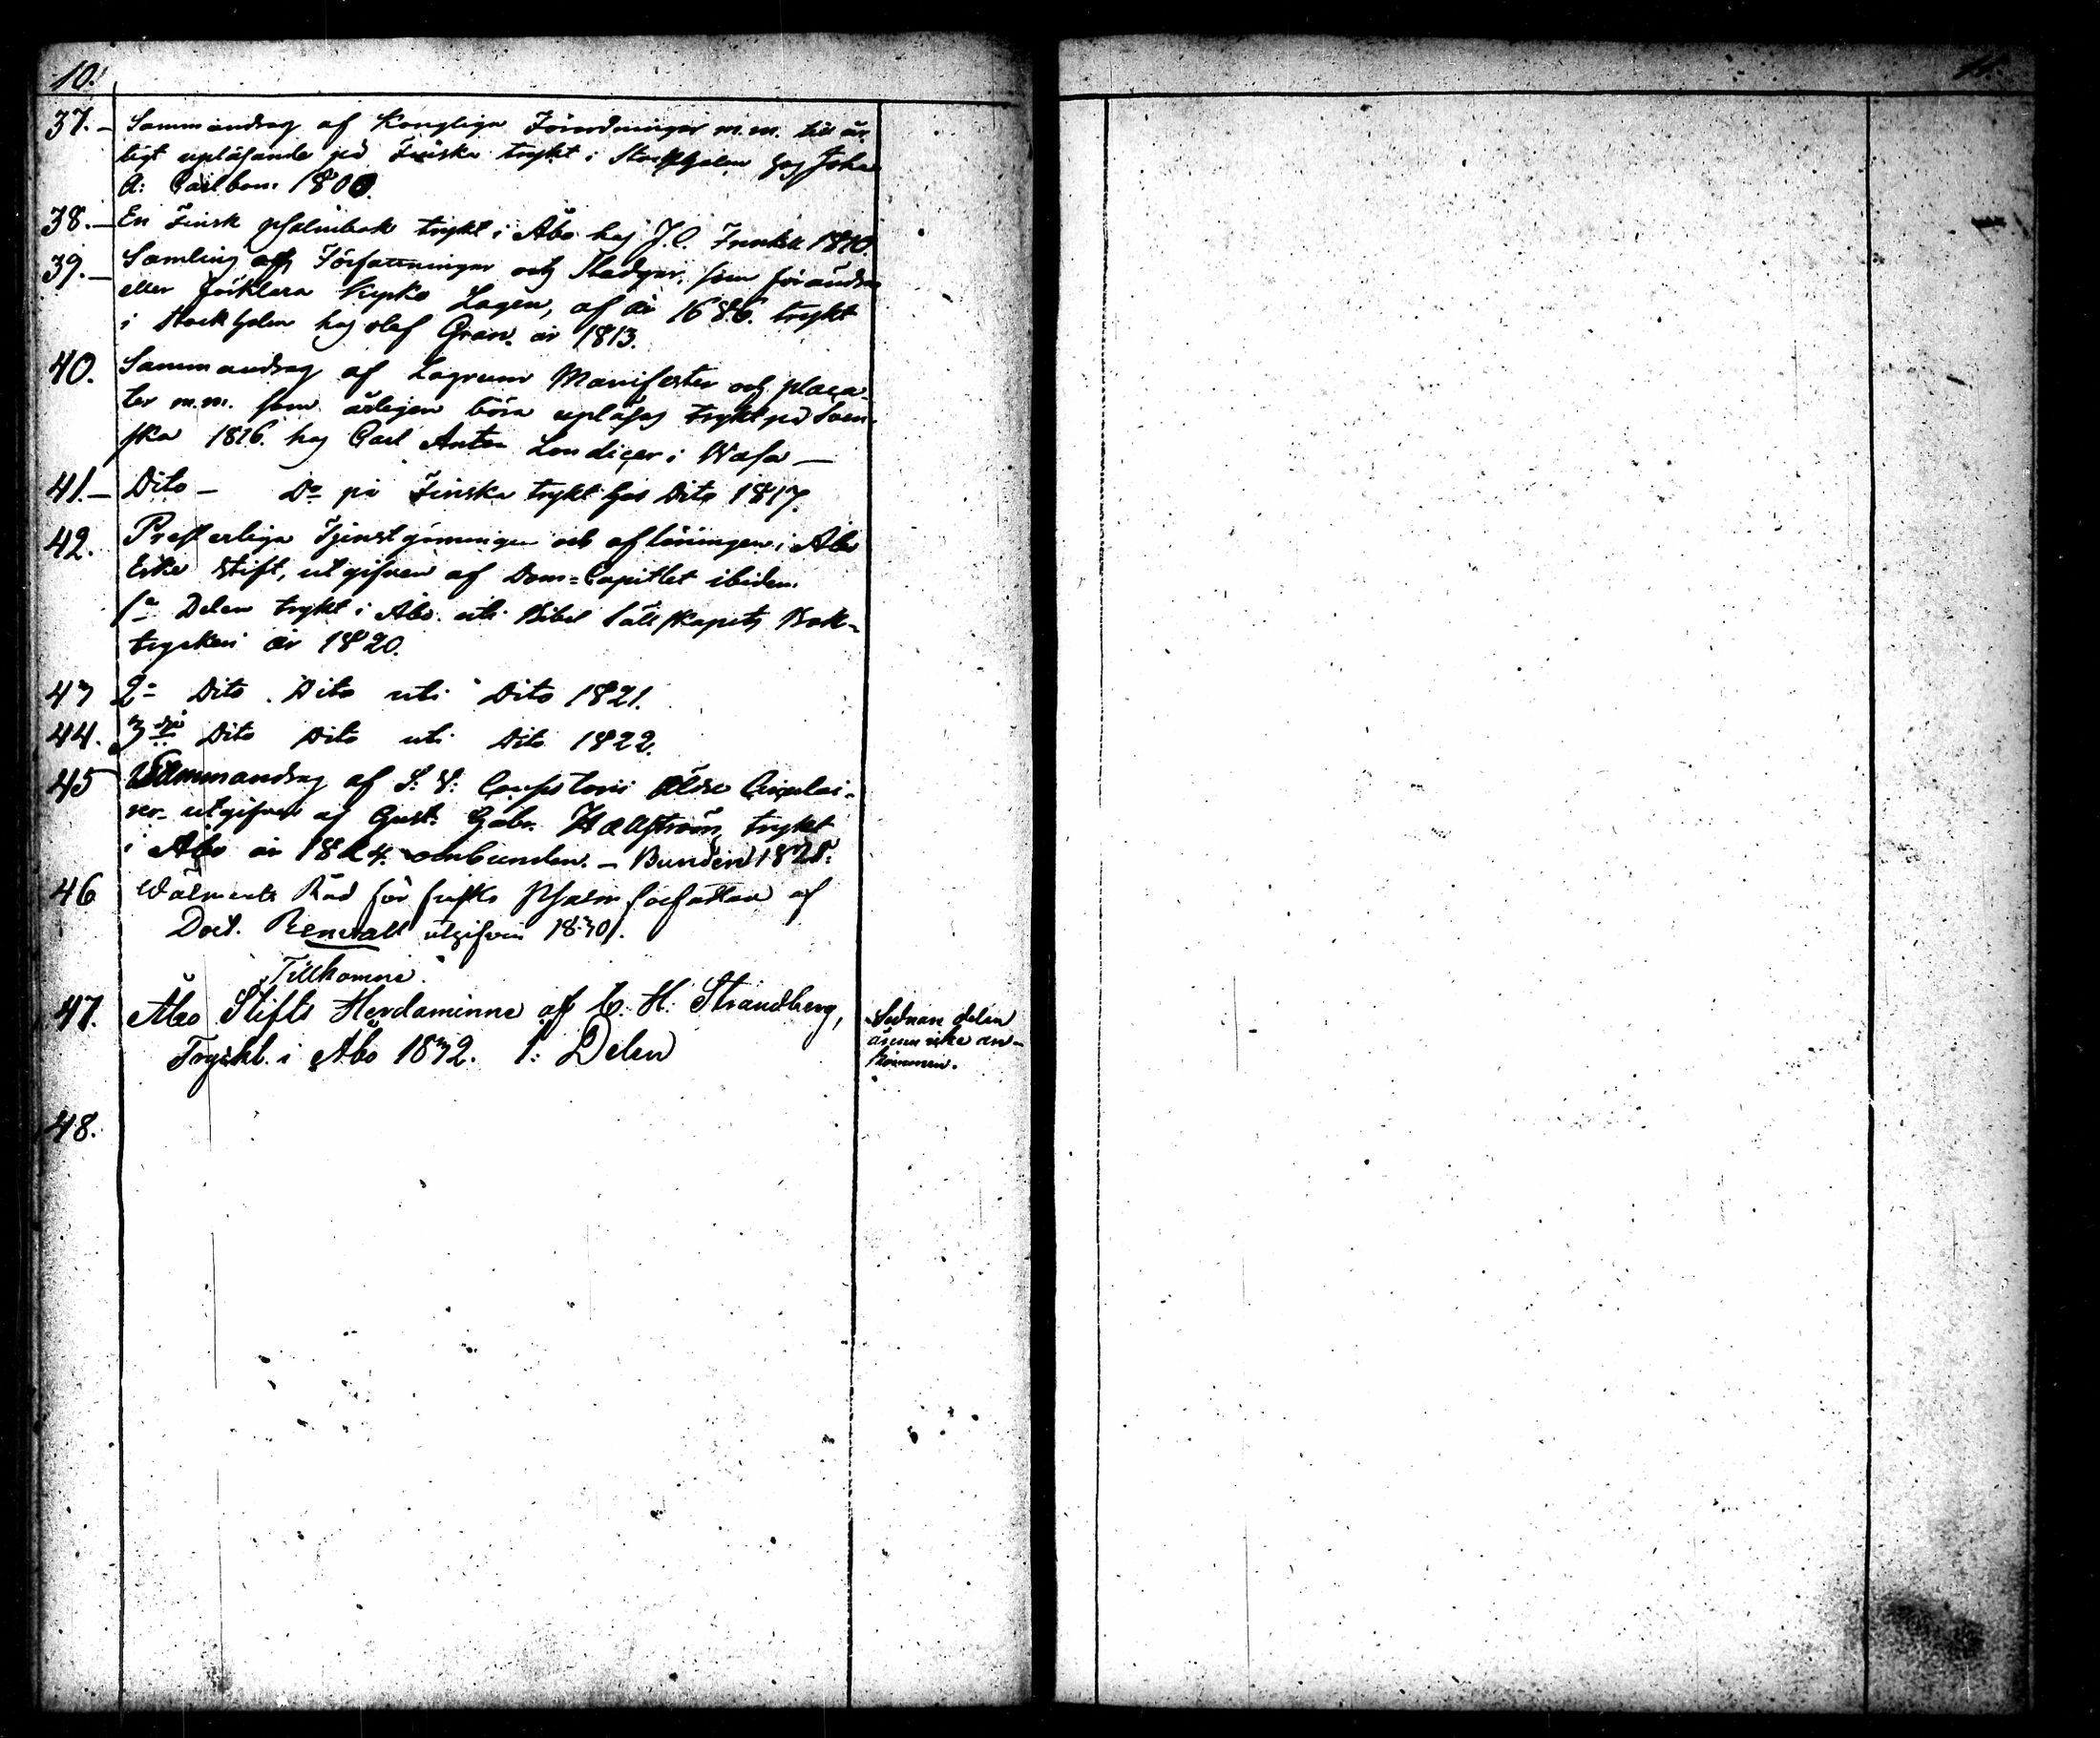 10.
37. – Sammandrag af Kongliga Förordningar m.m. till år-
ligt upläsande på Finska trykt i Stockholm hos Joha
A: Carlbom 1800.
38. – En Finsk psalmbok trykt i Åbo hos J. C. Frenkell 1810.
39. – Samling af Författningar och Stadgar, som förändra
eller förklara Kyrko Lagen, af år 1686. trykt
i Stockholm hos Olof Gran. år 1813.
40. Sammandrag af Lagrum Manifester och placa-
ter m.m. som årligen böra upläsas trykt på Sven-
ska 1816. hos Carl Anton Londicer i Wasa –
41. – Dito – Do på Finska trykt hos Dito 1817.
42. Presterliga Tjenstgöringen och aflöningen i Åbo
Erke Stift, utgifven af Dom-Capitlet ibidem.
1a Delen trykt i Åbo uti Bibel Sällskapets Bok-
tryckeri år 1820.
43 2a Dito Dito uti Dito 1821.
44. 3dje Dito Dito uti Dito 1822.
45 Sammandrag af S. V. Consistorii äldre Circulai-
rer utgifvet af Gust. Gabr. Hællström, trykt
i Åbo år 1824. obunden. – Bunden 1828.
46 Wälment Råd för Psalm författare af
Doct. Renvall utgifven 1830.
Tillkomne
47. Åbo Stifts Herdaminne af C. H. Strandberg,
Tryckt i Åbo 1832. 1: Delen
Sednare delen
ännu icke an-
kommen.
48.
11.